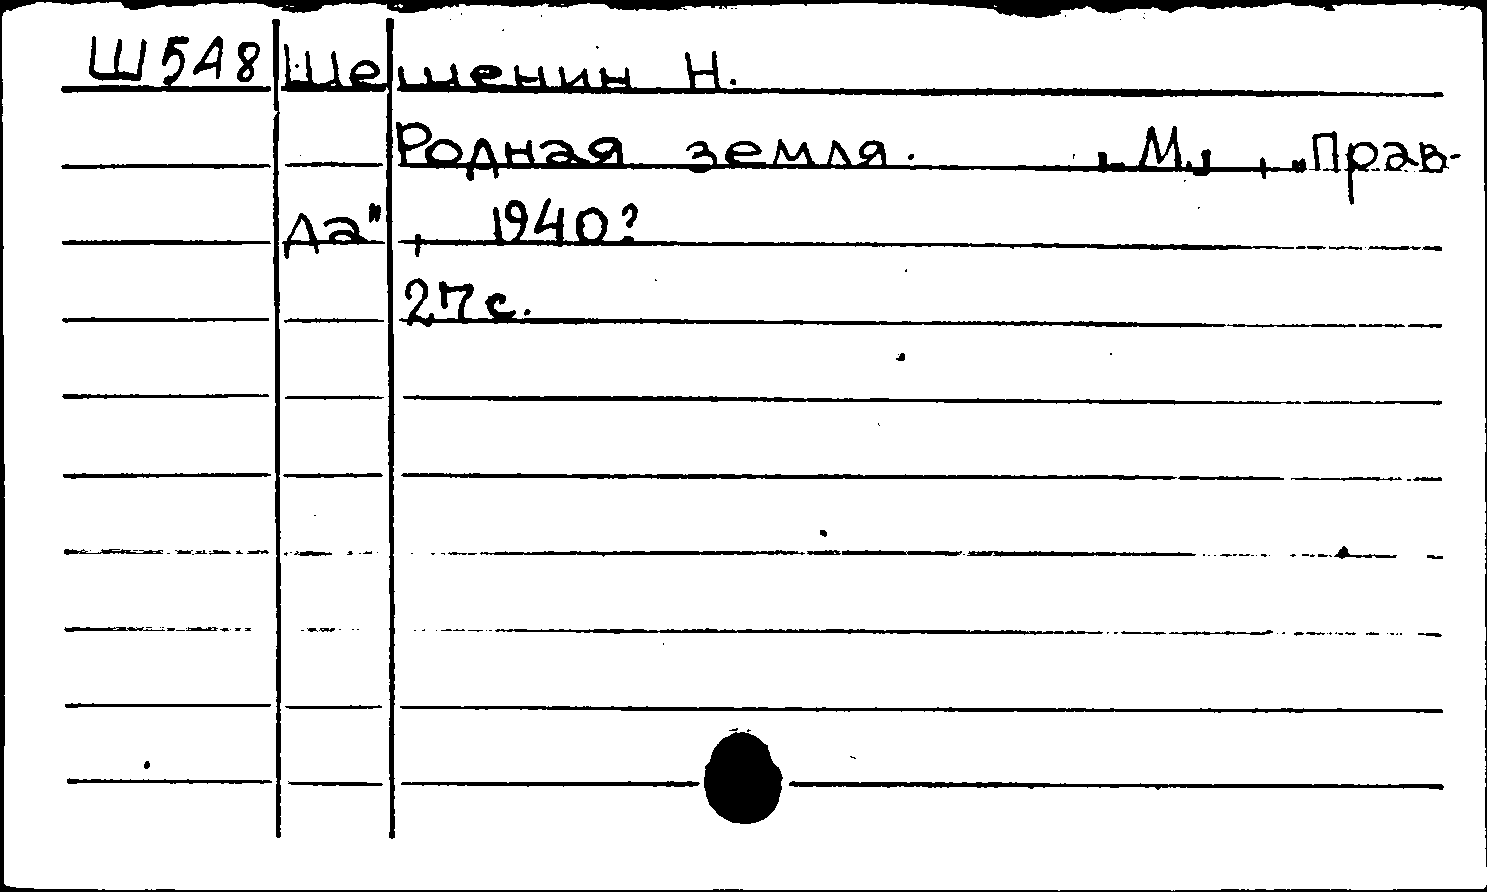 Ш548 Шешенин Н.
Родная земля. [М.], „Прав-
да", 1940?
27 с.